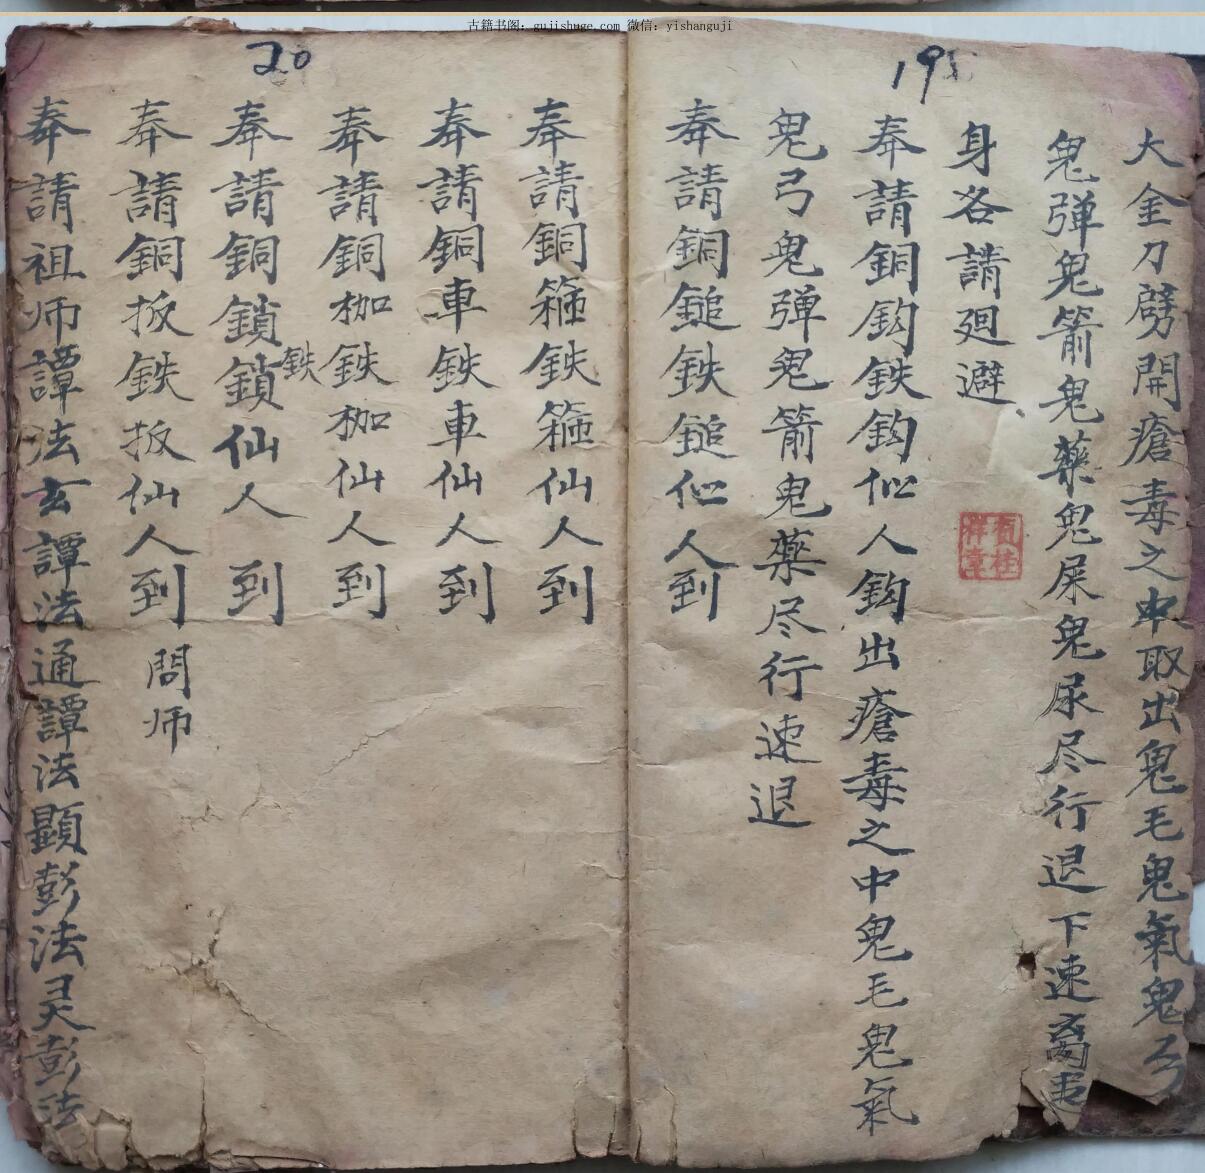 古籍书阁：gujishuge.com 微信：yishanguji
19
大金刀劈開瘡毒之中取出鬼毛鬼氣鬼弓
鬼弹鬼箭鬼藥鬼屎鬼尿尽行退下速离
身各請廻避、
奉請銅鈎鉄鈎仙人鈎出瘡毒之中鬼毛鬼氣
鬼弓鬼弹鬼箭鬼藥尽行速退
奉請銅鎚鉄鎚仙人到
20
奉請銅箍鉄箍仙人到
奉請銅車鉄車仙人到
奉請銅枷鉄枷仙人到
奉請銅鎖鉄鎖仙人到
奉請銅扳鉄扳仙人到 問师
奉請祖师譚法玄譚法通譚法顕彭法灵彭法